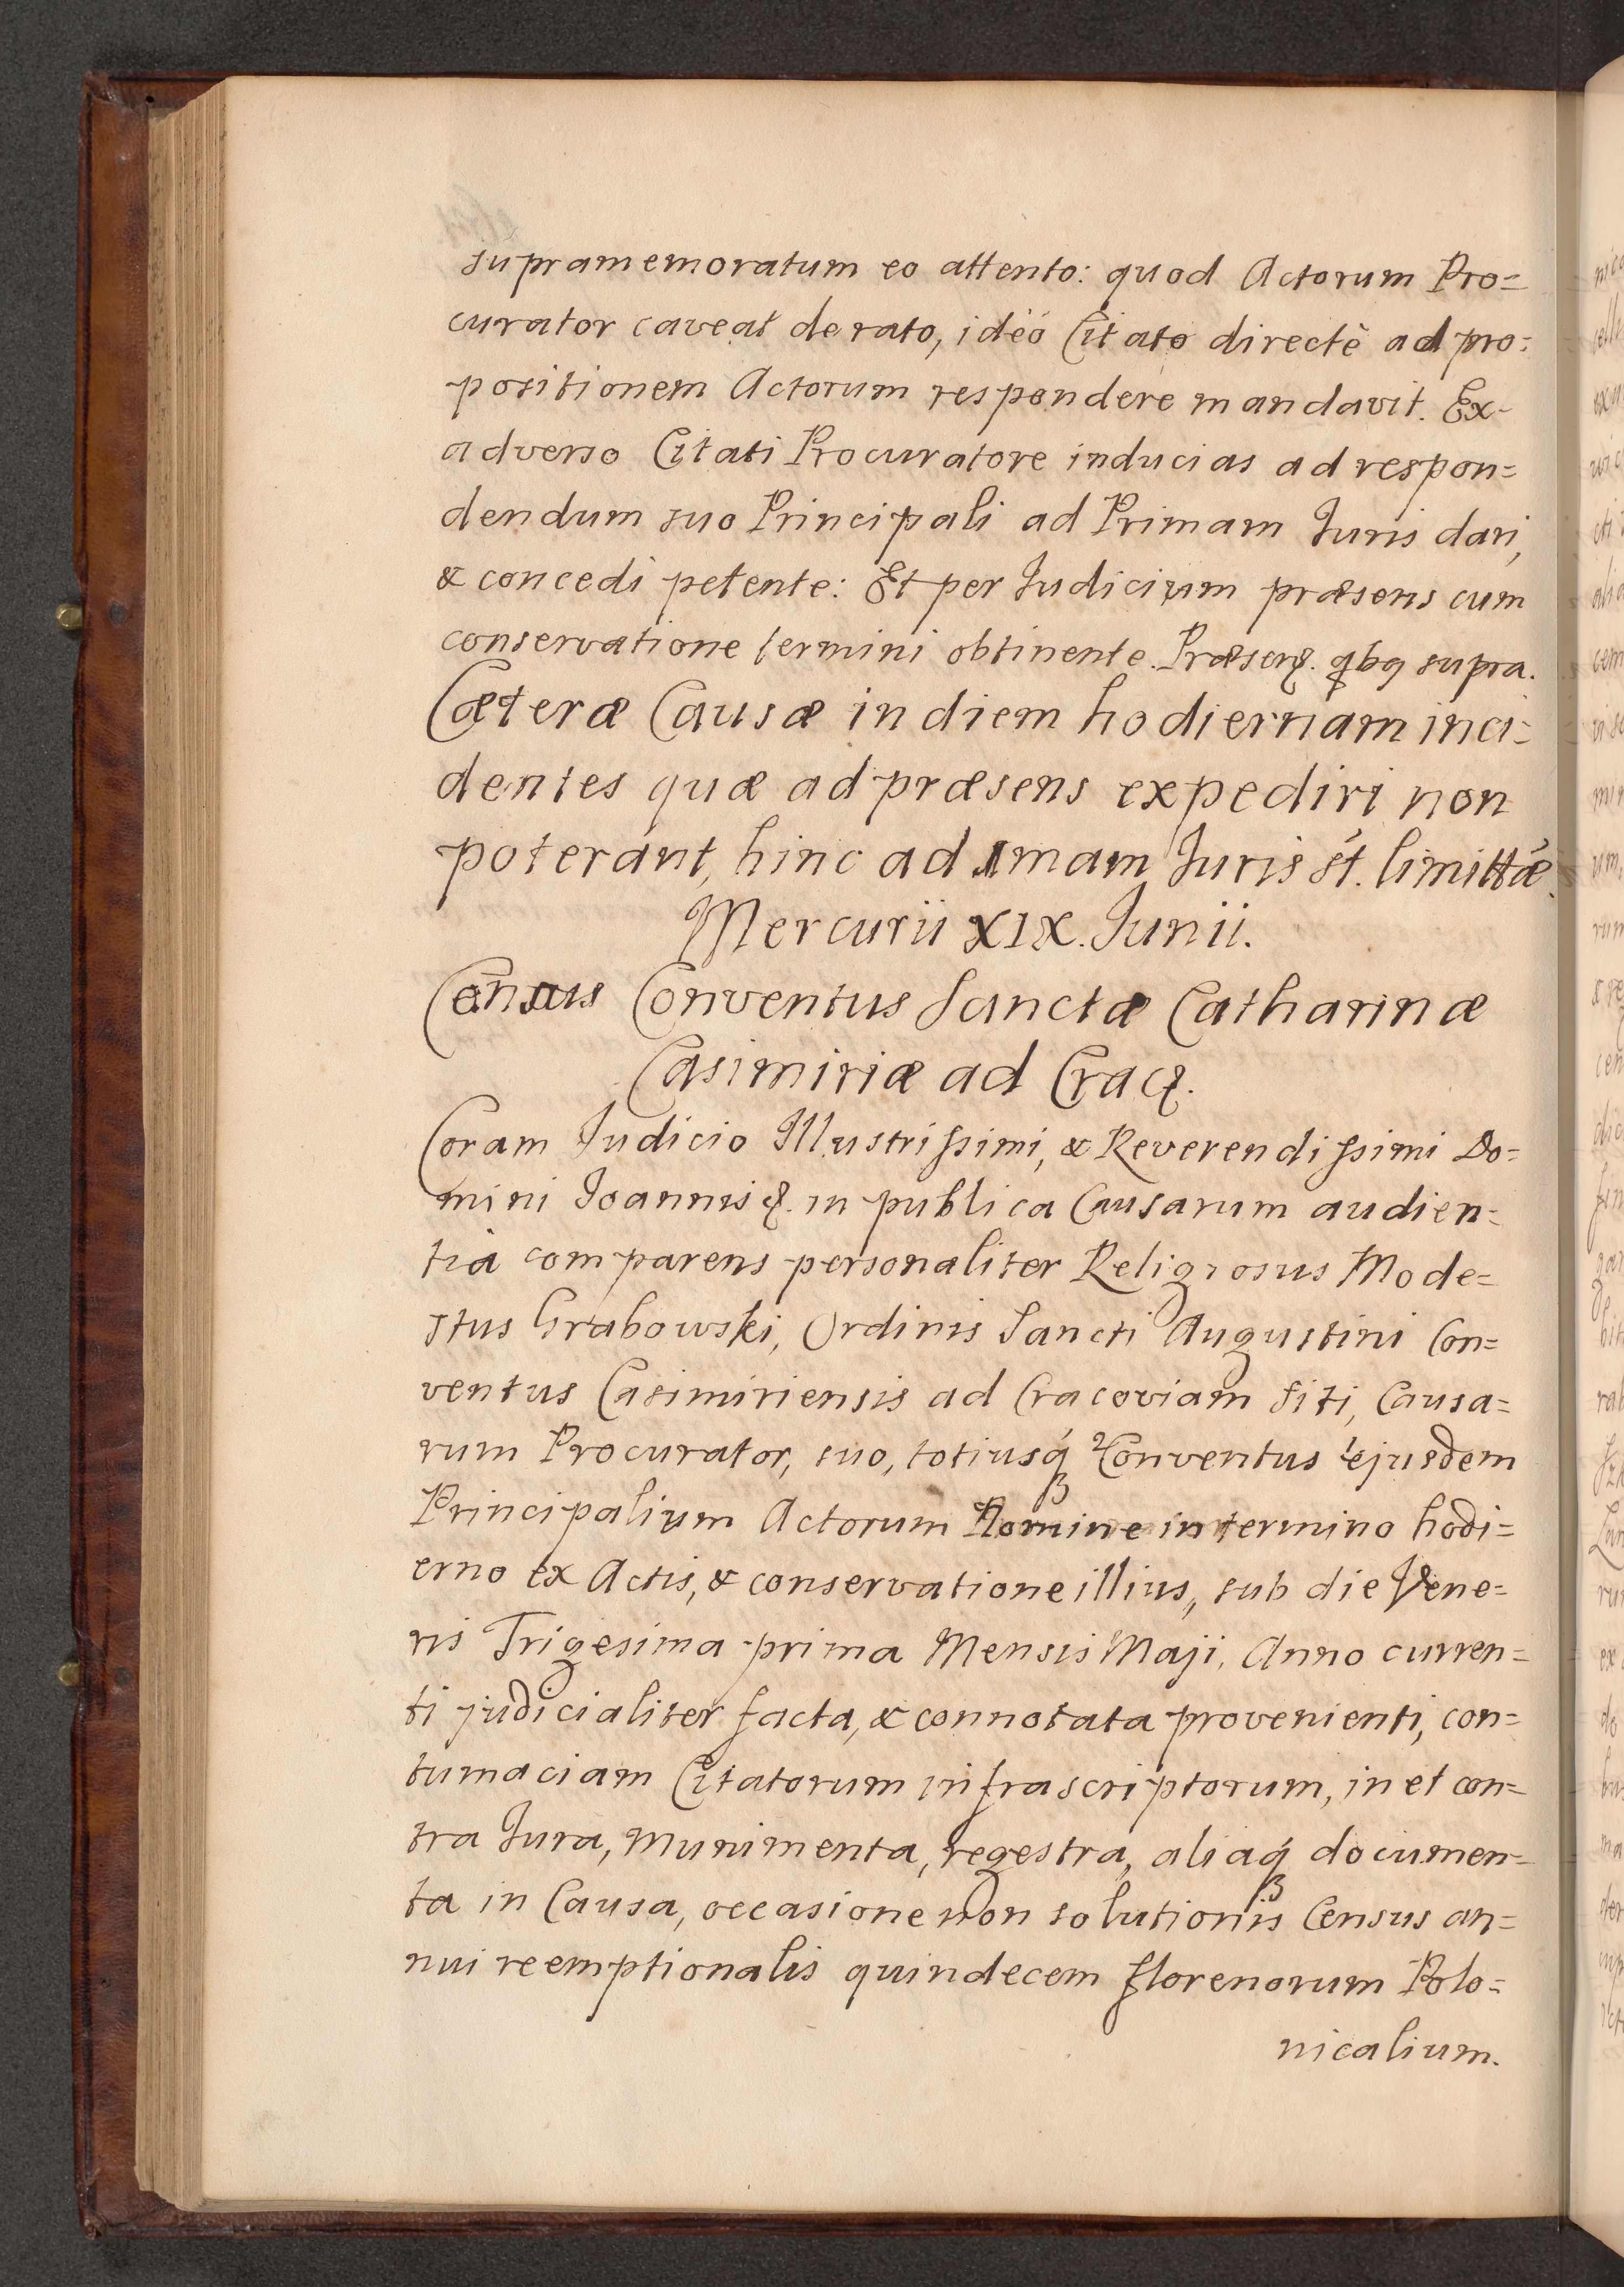 supramemoratum eo attento: quod Actorum Pro=
curator caveat de rato, ideó Citato directè ad pro=
positionem Actorum respondere mandavit. Ex-
adverso Citati Procuratore inducias ad respon=
dendum suo Principali ad Primam Iuris dari,
& concedi petente: Et per Iudicium præsens cum
conservatione termini obtinente. supra.
Cæteræ Causæ in diem hodiernam inci=
dentes quæ ad præsens expediri non
poterant, hinc ad 1mam Iuris śt. limittæ.
Mercurii XIX. Junii.
Census Conventus Sanctæ Catharinæ
Casimiriæ ad Crac.
Coram Judicio Illustrissimi, & Reverendissimi Do=
mini Joannis &. in publica Causarum audien=
tia comparens personaliter Religiosus Mode=
stus Grabowski, Ordinis Sancti Augustini Con=
ventus Casimiriensis ad Cracoviam siti, Causa=
rum Procurator, suo, totiusq́ Conventus ejusdem
Principalium Actorum Nomine in termino hodi=
erno ex Actis, & conservatione illius, sub die Vene=
ris Trigesima prima Mensis Maji, Anno curren=
ti judicialiter facta, & connotata provenienti, con=
tumaciam Citatorum infrascriptorum, in et con=
tra Jura, Munimenta, regestra, aliaq́ documen=
ta in Causa, occasione non solutionis Census an=
nui reemptionalis quindecem florenorum Polo=
nicalium.